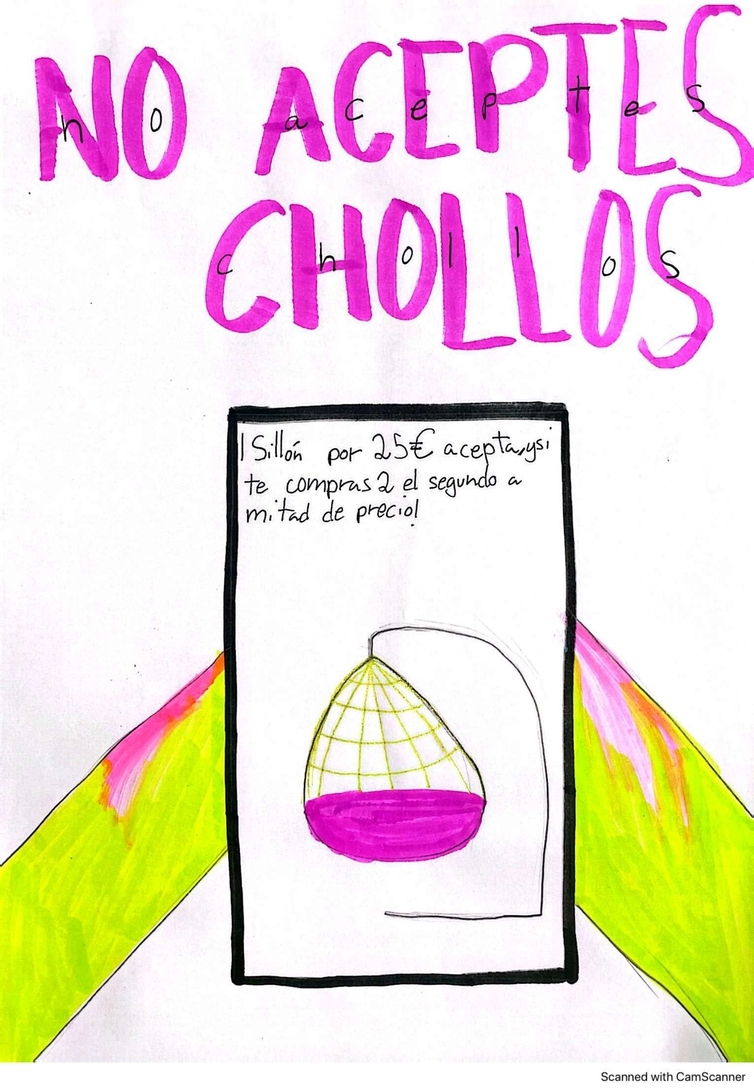 NO ACEPTES
no aceptes
CHOLLOS
chollos
1 Sillón por 25€ acepta, y si
te compras 2 el segundo a
mitad de precio!
Scanned with CamScanner